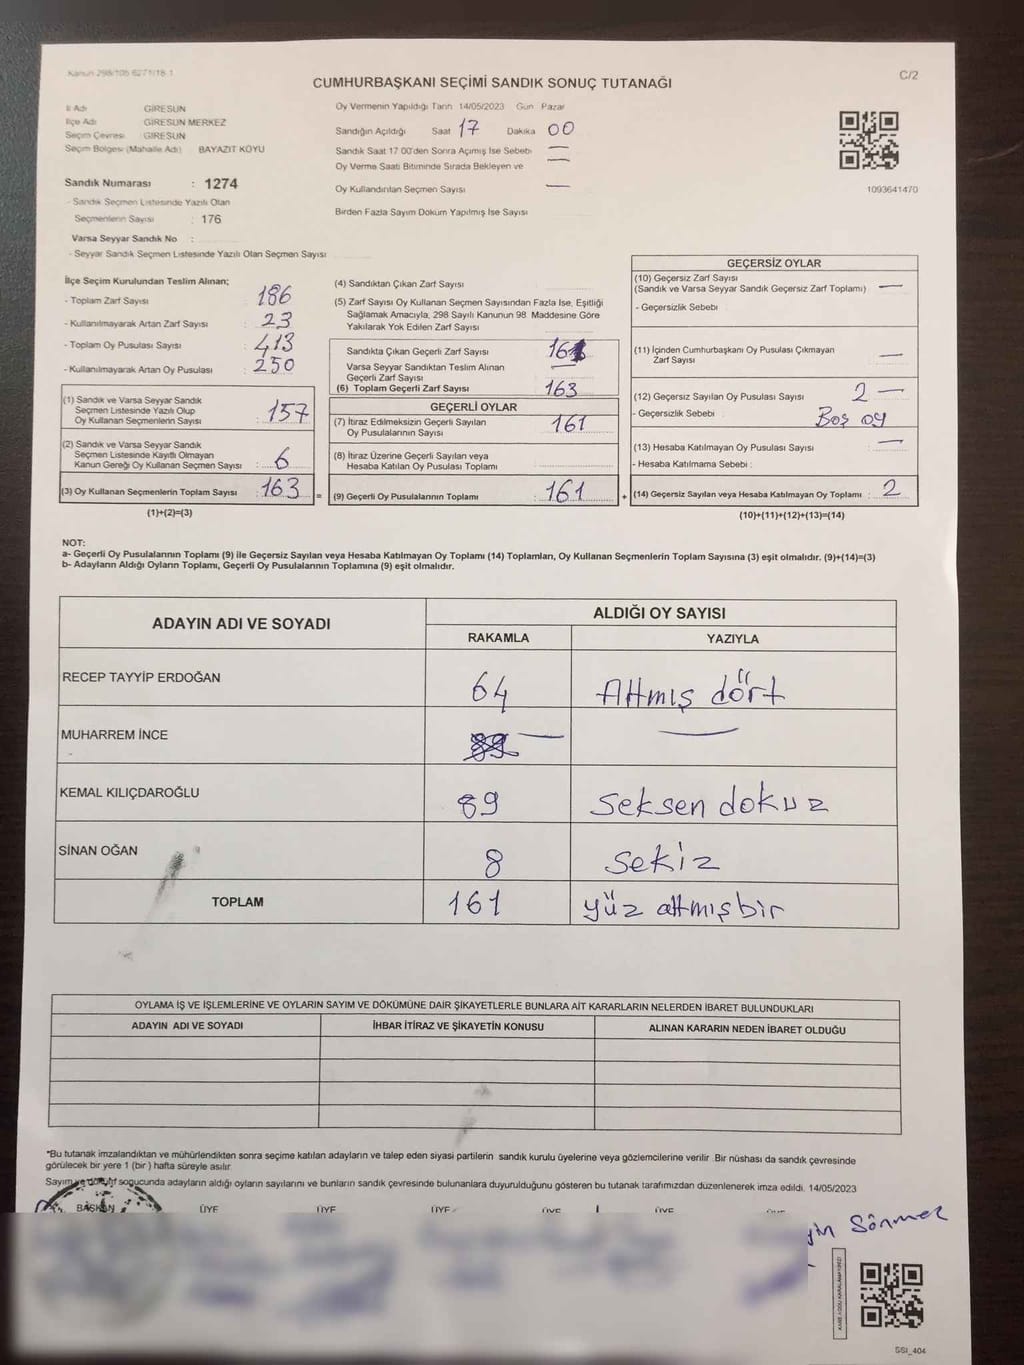 Kanun 298/105 6271/18 1
C/2
CUMHURBAŞKANI SEÇİMİ SANDIK SONUÇ TUTANAĞI
İl Adı GİRESUN
İlçe Adı GİRESUN MERKEZ
Seçim Çevresi GİRESUN
Seçim Bölgesi (Mahalle Adı) BAYAZIT KÖYÜ
Sandık Numarası : 1274
- Sandık Seçmen Listesinde Yazılı Olan
Seçmenlerin Sayısı : 176
Varsa Seyyar Sandık No :
- Seyyar Sandık Seçmen Listesinde Yazılı Olan Seçmen Sayısı
Oy Vermenin Yapıldığı Tarih 14/05/2023 Gün Pazar
Sandığın Açıldığı Saat 17 Dakika 00
Sandık Saat 17 00'den Sonra Açılmış İse Sebebi —
Oy Verme Saati Bitiminde Sırada Bekleyen ve —
Oy Kullandırılan Seçmen Sayısı —
Birden Fazla Sayım Döküm Yapılmış İse Sayısı
1093641470
İlçe Seçim Kurulundan Teslim Alınan;
- Toplam Zarf Sayısı : 186
- Kullanılmayarak Artan Zarf Sayısı : 23
- Toplam Oy Pusulası Sayısı : 413
- Kullanılmayarak Artan Oy Pusulası : 250
(1) Sandık ve Varsa Seyyar Sandık
Seçmen Listesinde Yazılı Olup
Oy Kullanan Seçmenlerin Sayısı : 157
(2) Sandık ve Varsa Seyyar Sandık
Seçmen Listesinde Kayıtlı Olmayan
Kanun Gereği Oy Kullanan Seçmen Sayısı : 6
(3) Oy Kullanan Seçmenlerin Toplam Sayısı : 163 =
(1)+(2)=(3)
(4) Sandıktan Çıkan Zarf Sayısı
(5) Zarf Sayısı Oy Kullanan Seçmen Sayısından Fazla İse, Eşitliği
Sağlamak Amacıyla, 298 Sayılı Kanunun 98. Maddesine Göre
Yakılarak Yok Edilen Zarf Sayısı
Sandıkta Çıkan Geçerli Zarf Sayısı
Varsa Seyyar Sandıktan Teslim Alınan
Geçerli Zarf Sayısı —
(6) Toplam Geçerli Zarf Sayısı 163
GEÇERLİ OYLAR
(7) İtiraz Edilmeksizin Geçerli Sayılan
Oy Pusulalarının Sayısı : 161
(8) İtiraz Üzerine Geçerli Sayılan veya
Hesaba Katılan Oy Pusulası Toplamı
(9) Geçerli Oy Pusulalarının Toplamı : 161 +
GEÇERSİZ OYLAR
(10) Geçersiz Zarf Sayısı
(Sandık ve Varsa Seyyar Sandık Geçersiz Zarf Toplamı) —
- Geçersizlik Sebebi
(11) İçinden Cumhurbaşkanı Oy Pusulası Çıkmayan
Zarf Sayısı —
(12) Geçersiz Sayılan Oy Pusulası Sayısı 2 —
- Geçersizlik Sebebi : Boş oy
(13) Hesaba Katılmayan Oy Pusulası Sayısı —
- Hesaba Katılmama Sebebi :
(14) Geçersiz Sayılan veya Hesaba Katılmayan Oy Toplamı : 2
(10)+(11)+(12)+(13)=(14)
NOT:
a- Geçerli Oy Pusulalarının Toplamı (9) ile Geçersiz Sayılan veya Hesaba Katılmayan Oy Toplamı (14) Toplamları, Oy Kullanan Seçmenlerin Toplam Sayısına (3) eşit olmalıdır. (9)+(14)=(3)
b- Adayların Aldığı Oyların Toplamı, Geçerli Oy Pusulalarının Toplamına (9) eşit olmalıdır.
ADAYIN ADI VE SOYADI ALDIĞI OY SAYISI
RAKAMLA YAZIYLA
RECEP TAYYİP ERDOĞAN 64 Altmış dört
MUHARREM İNCE — —
KEMAL KILIÇDAROĞLU 89 Seksen dokuz
SİNAN OĞAN 8 Sekiz
TOPLAM 161 yüz altmışbir
OYLAMA İŞ VE İŞLEMLERİNE VE OYLARIN SAYIM VE DÖKÜMÜNE DAİR ŞİKAYETLERLE BUNLARA AİT KARARLARIN NELERDEN İBARET BULUNDUKLARI
ADAYIN ADI VE SOYADI İHBAR İTİRAZ VE ŞİKAYETİN KONUSU ALINAN KARARIN NEDEN İBARET OLDUĞU
*Bu tutanak imzalandıktan ve mühürlendikten sonra seçime katılan adayların ve talep eden siyasi partilerin sandık kurulu üyelerine veya gözlemcilerine verilir Bir nüshası da sandık çevresinde
görülecek bir yere 1 (bir) hafta süreyle asılır
Sayım ve döküm sonucunda adayların aldığı oyların sayılarını ve bunların sandık çevresinde bulunanlara duyurulduğunu gösteren bu tutanak tarafımızdan düzenlenerek imza edildi. 14/05/2023
BAŞKAN ÜYE ÜYE ÜYE ÜYE ÜYE
Sönmez
SSI_404